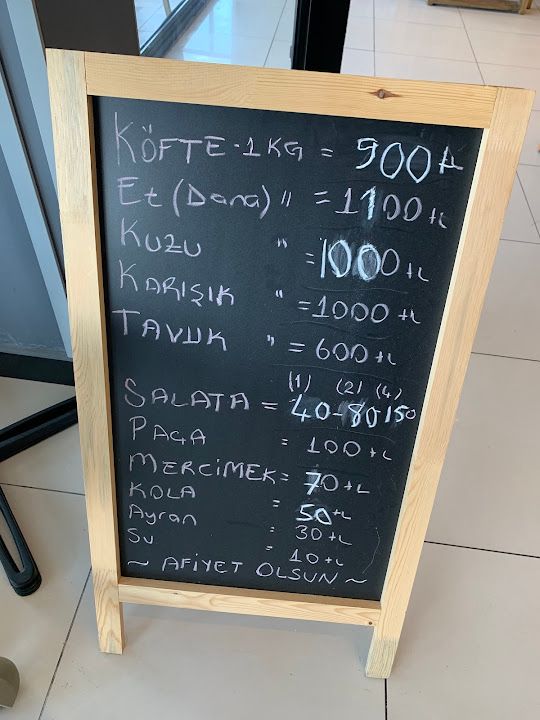 KÖFTE-1KG = 900 tL
Et (Dana) " = 1100 tL
KUZU " = 1000 tL
KARIŞIK " = 1000 tL
TAVUK " = 600 tL
(1) (2) (4)
SALATA = 40-80 150
PAÇA = 100 tL
MERCİMEK = 70 tL
KOLA = 50 tL
Ayran = 30 tL
Su = 10 tL
~ AFİYET OLSUN ~